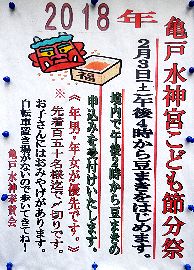 2018年
亀戸水神宮こども節分祭
2月3日(土)午後4時から豆まきをはじめます。
境内で午後2時から「豆まきの
申込みを受付けいたします。
《年男・年女が優先です。》
※先着百五十名様迄で〆切りです。
お子さんにはおみやげがあります。
自転車置き場がないので歩いてきてね!
亀戸水神奉賛会
福